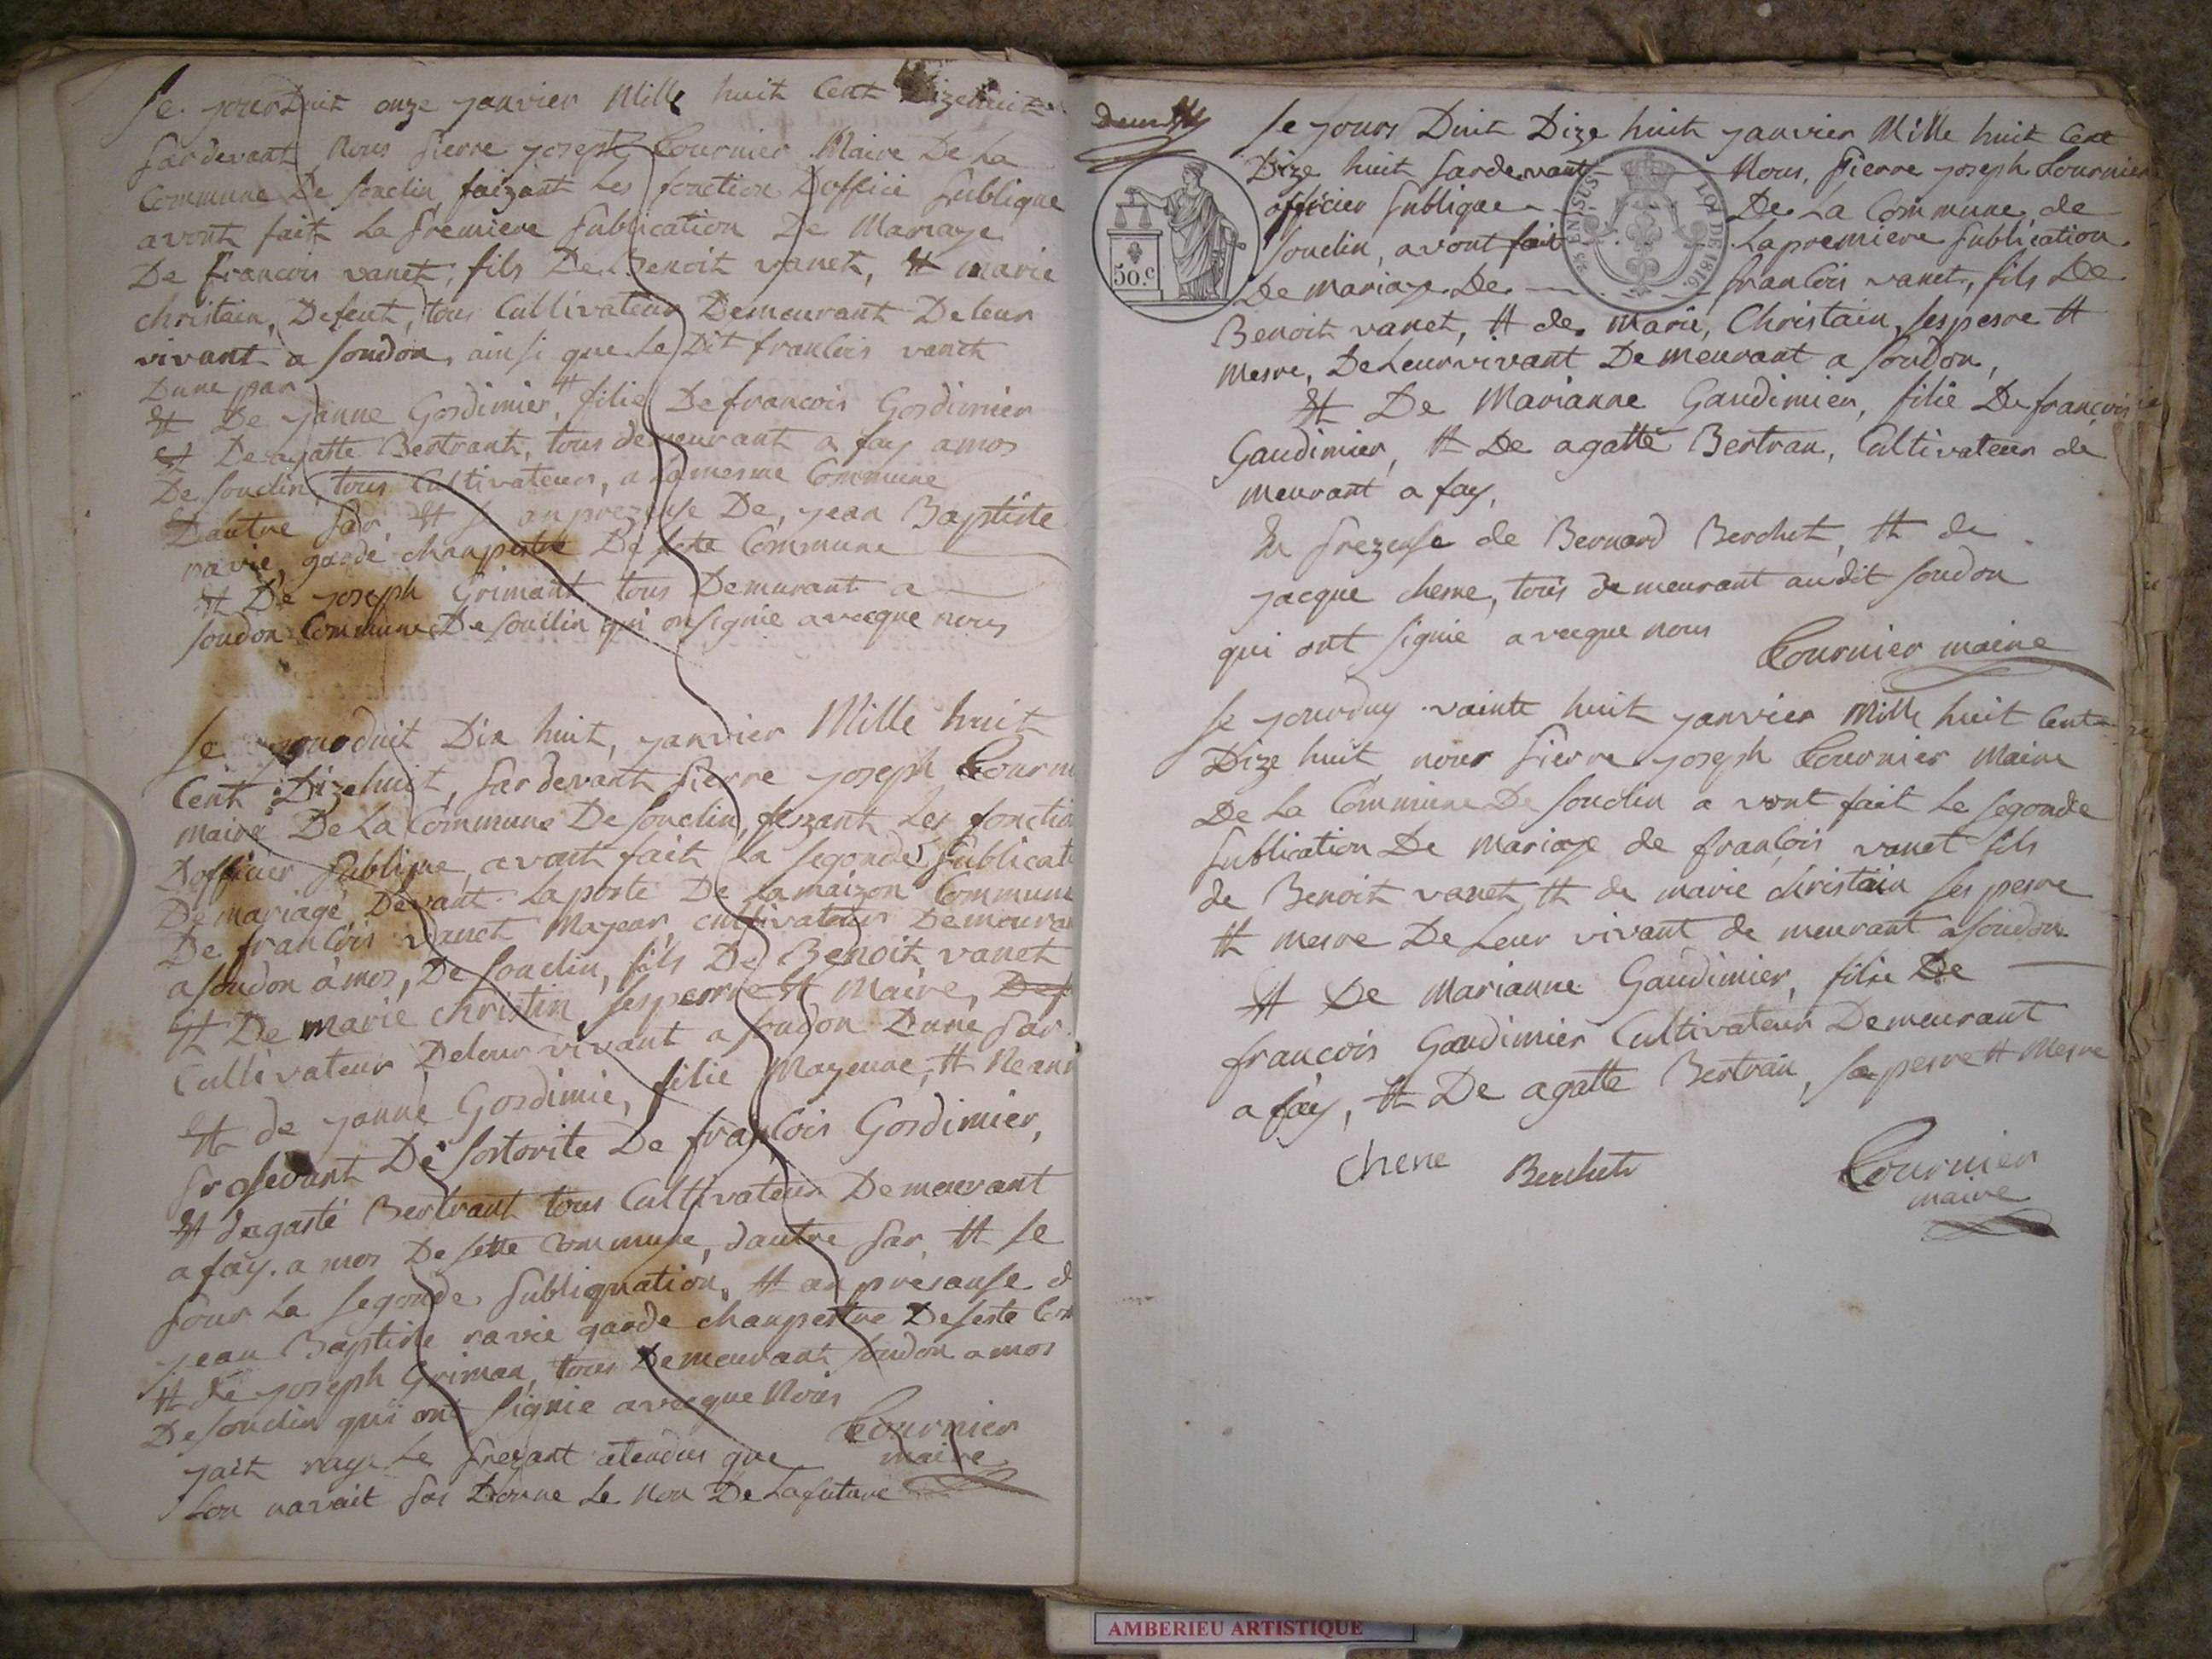 Se jourduit onze janvier Mille huit Cent Dizehuit
Pardevant Nous Pierre joseph Cournier Maire De La
Commune De Souclin faizant Les fonction Doffici Publique
avont fait La Premiere Publication De Mariage
De francois vanet, fils De Benoit vanet, et marie
christain, Defeut, tous Cultivateur Demeurant De leur
vivant a Soudon, ainsi que Le Dit francois vanet
Dune par
et De janne Gordimier, filie De francois Gordimier
et De agatte Bertrant, tous demeurant a fay amos
De Souclin, tous Cultivateurs, a La mesme Commune
Dautre Par et se an prezense De, jean Baptiste
ravie, garde chanpestre De sete Commune
et De joseph Grimant tous Demurant a
Soudon Commune De Souclin qui on signie avecque nous
Se jourduit Dix huit, janvier Mille huit
Cent Dizehuit, Pardevant Pierre joseph Courni
maire De La Commune De Souclin, fezant Les fonction
Dofficier Publique, avont fait La segonde Publicati
De mariage Devant La porte De La maizon Commune
De francois vanet Mazeur, cultivateur Demoura
a Soudon amos, De Souclin, fils De Benoit vanet
et De marie christin, ses perre et Maire, Def
Cultivateur Deleur vivant a Soudon Dune Par.
et de janne Gordimie, filie Mazeune, et Neanm
Prosedant De Sortorite De francois Gordimier,
et dagaste Bertrant tous Cultivateur Demeurant
a fay. a mos De sette Commune, dautre Par, et se
Pour La segonde Publiquation, et an presanse d
jean Baptiste ravie garde chanpestre De seste Com
et De joseph Griman, tous Demeurant Soudon amos
De Souclin qui ont signie avecque Nous
jait raye Le Prezant atendus que
Lon navait Pas Donne Le Non De Lafuture
Cournier
maire
deux
Se jours Duit Dize huit janvier Mille huit Cent
Dize huit Pardevant Nous, Pierre joseph Cournier
officier Publique De La Commune de
Souclin, avont fait La premiere Publication
De mariage De francois vanet, fils De
Benoit vanet, et de marie, Christain, ses pesre et
mesre, De Leur vivant Demeurant a Soudon,
et De Marianne Gaudimier, filie De francois
Gaudimier, et De agatte Bertran, Cultivateur de
meurant a fay,
En Prezense de Bernard Berchet, et de
jacque chesne, tous demeurant audit Soudon
qui ont signie avecque nous Cournier maire
50.c
LOI DE 1816
25 EN SUS
Se jourduy vainte huit janvier Mille huit Cent
Dize huit nous Pierre joseph Cournier Maire
De La Commune De Souclin a vont fait Le segonde
Publication De Mariage de francois vanet fils
de Benoit vanet et de marie christain ses pesre
et mesre De Leur vivant de meurant a Soudon
et De Marianne Gaudimier, filie De
francois Gaudimier Cultivateur Demeurant
a fay, et De agatte Bertrain, sa pesre et Mesre
Chene Berchet Cournier
maire
AMBERIEU ARTISTIQUE